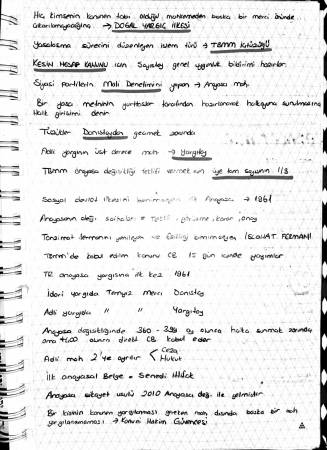 Hiç kimsenin kanunen tabi olduğu mahkemeden başka bir merci önünde
çıkarılamayacağına → DOĞAL YARGIÇ İLKESİ
Yasalaşma sürecini düzenleyen işlem türü → TBMM İçtüzüğü
KESİN HESAP KANUNU için Sayıştay genel uygunluk bildirimi hazırlar.
Siyasi Partilerin Mali Denetimini yapan → Anayasa mah.
Bir yasa metninin yurttaşlar tarafından hazırlanarak halkoyuna sunulmasına
Halk girişimi denir
Tüzükler Danıştaydan geçmek zorunda
Adli yargının üst derece mah → Yargıtay
TBMM anayasa değişikliği teklifi vermek için üye tam sayısının 1/3
Sosyal devlet ilkesini benimseyen ilk Anayasa → 1961
Anayasanın değiş safhaları = Teklif, görüşme, karar, onay
Tanzimat fermanını yenileyen ve eşitliği benimseyen ISLAHAT FERMANI
Tbmm'de kabul edilen kanunu CB 15 gün içinde yayımlar
TR anayasa yargısına ilk kez 1961
İdari yargıda Temyiz Merci Danıştay
Adli yargıda " " Yargıtay
Anayasa değişikliğinde 360 - 399 oy alınırsa halka sunmak zorunda
ama +400 alınırsa direkt CB kabul eder
Adli mah 2'ye ayrılır < Ceza Hukuk
İlk anayasal Belge = Senedi İttifak
Anayasa şikayet usulü 2010 Anayasa değiş. ile gelmiştir
Bir kişinin kanunen yargılanması gereken mah. dışında başka bir mah
yargılanamaması → Kanuni Hakim Güvencesi